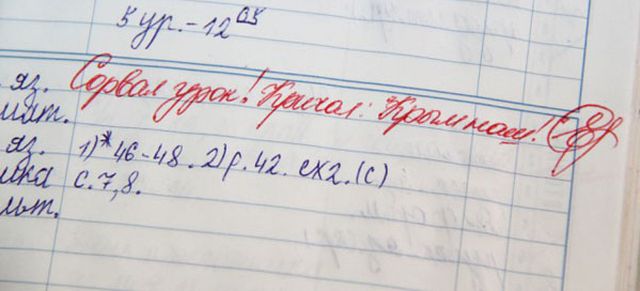 5 ур. - 12⁰⁵
яз. Сорвал урок! Кричал: Крым наш!
мат.
яз. 1)* 46-48. 2) р. 42. ex2. (с)
ика с. 7, 8.